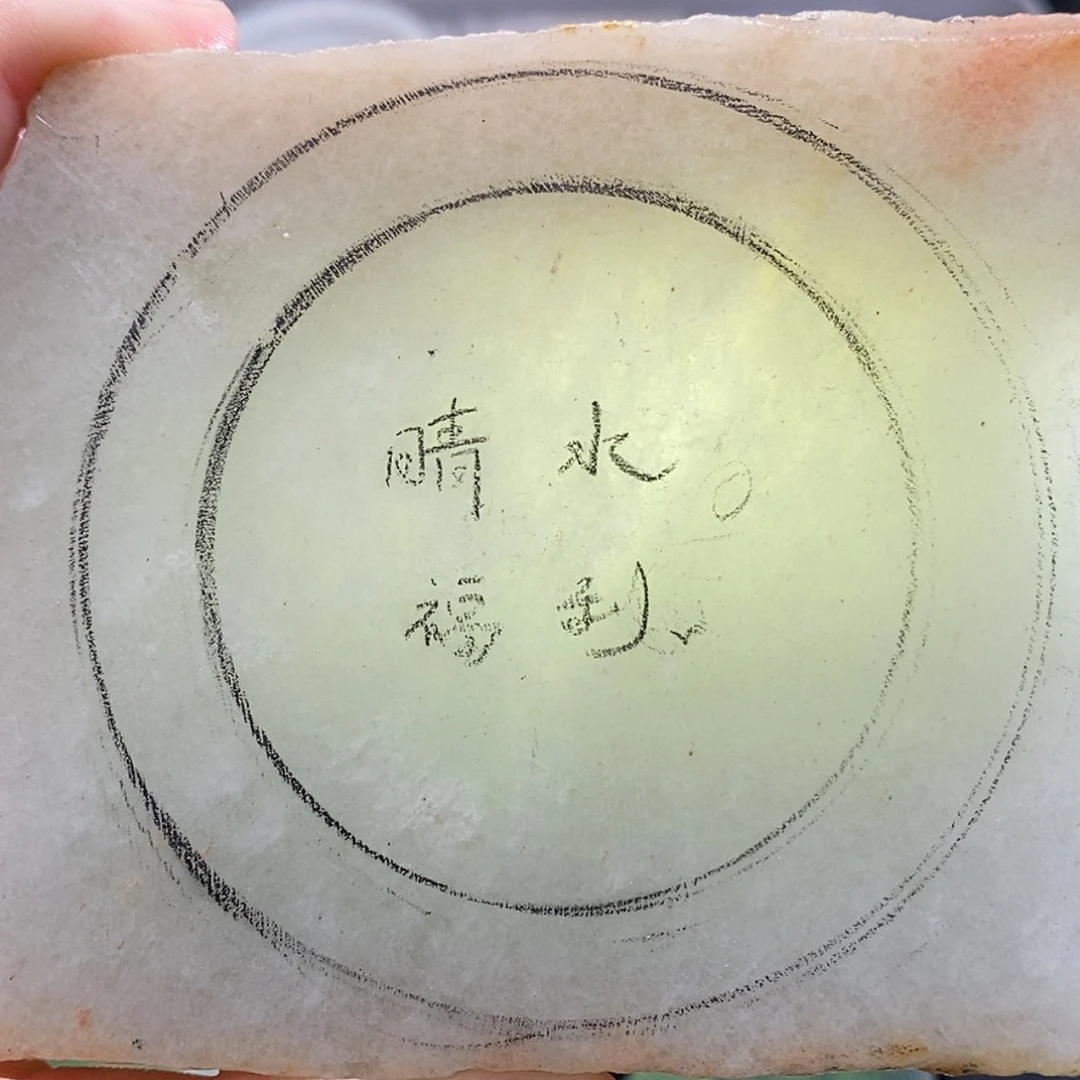 晴水
福到